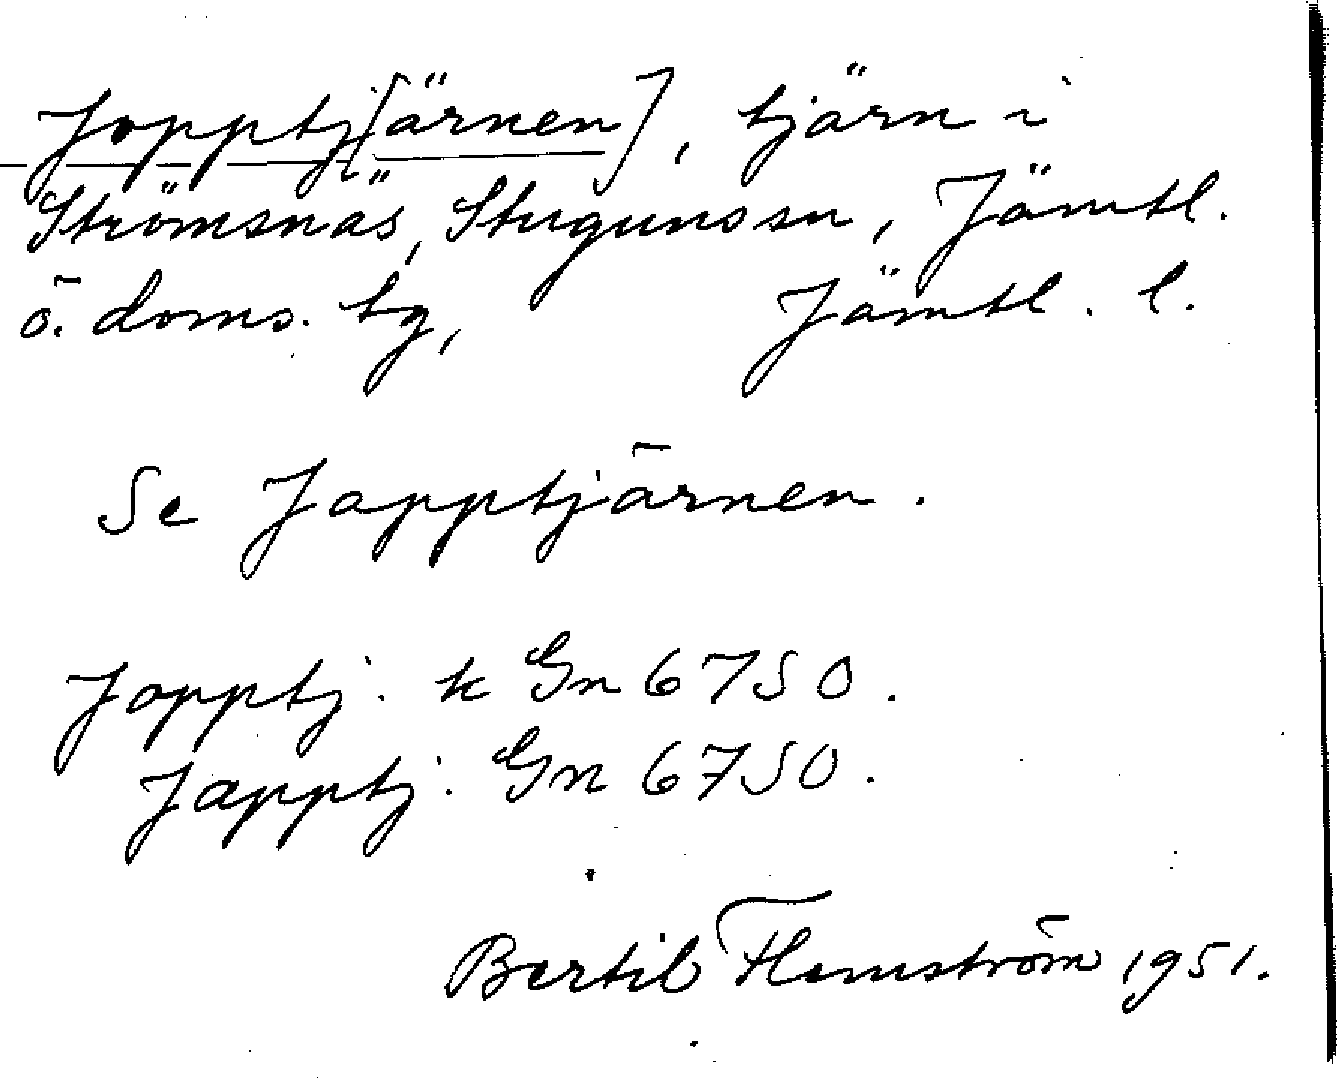 Jopptj[ärnen], tjärn i
Strömsnäs, Stuguns sn, Jämtl.
ö. doms. tg, Jämtl. l.
Se Japptjärnen.
Jopptj. k Gn 6750.
Japptj. Gn 6750.
Bertil Flemström 1951.